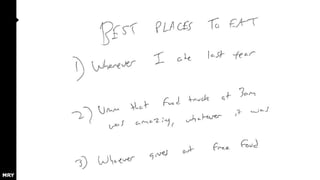 BEST PLACES TO EAT
1) Whenever I ate last year
2) Umm that food truck at 3am
was amazing, whatever it was
3) Whoever gives out free food
MRY